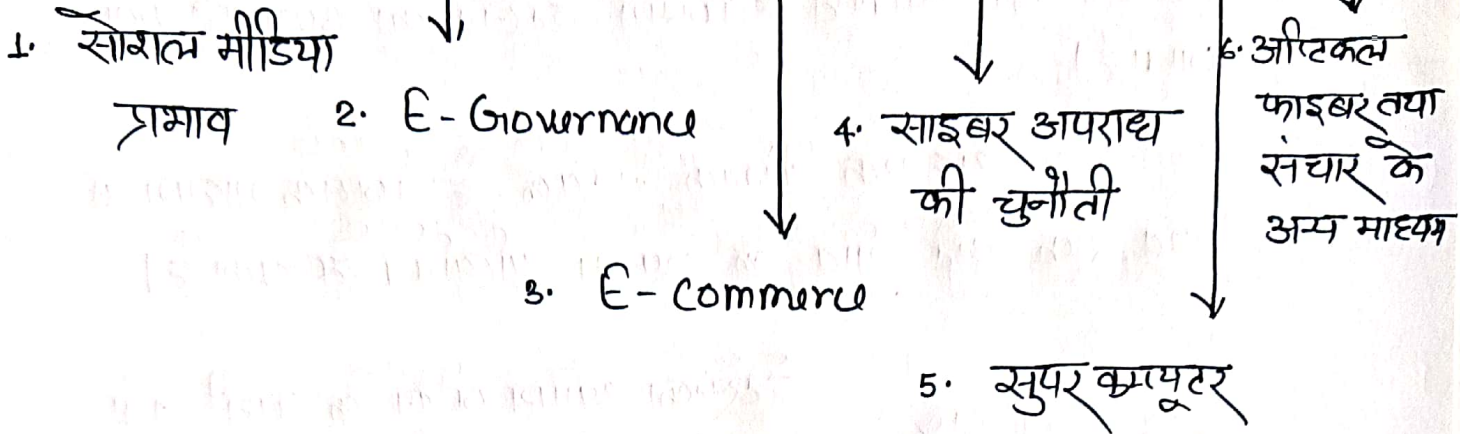 1. सोशल मीडिया
प्रभाव
2. E-Governance
3. E-commerce
4. साइबर अपराध
की चुनौती
5. सुपर कम्प्यूटर
6. ऑप्टिकल
फाइबर तथा
संचार के
अन्य माध्यम